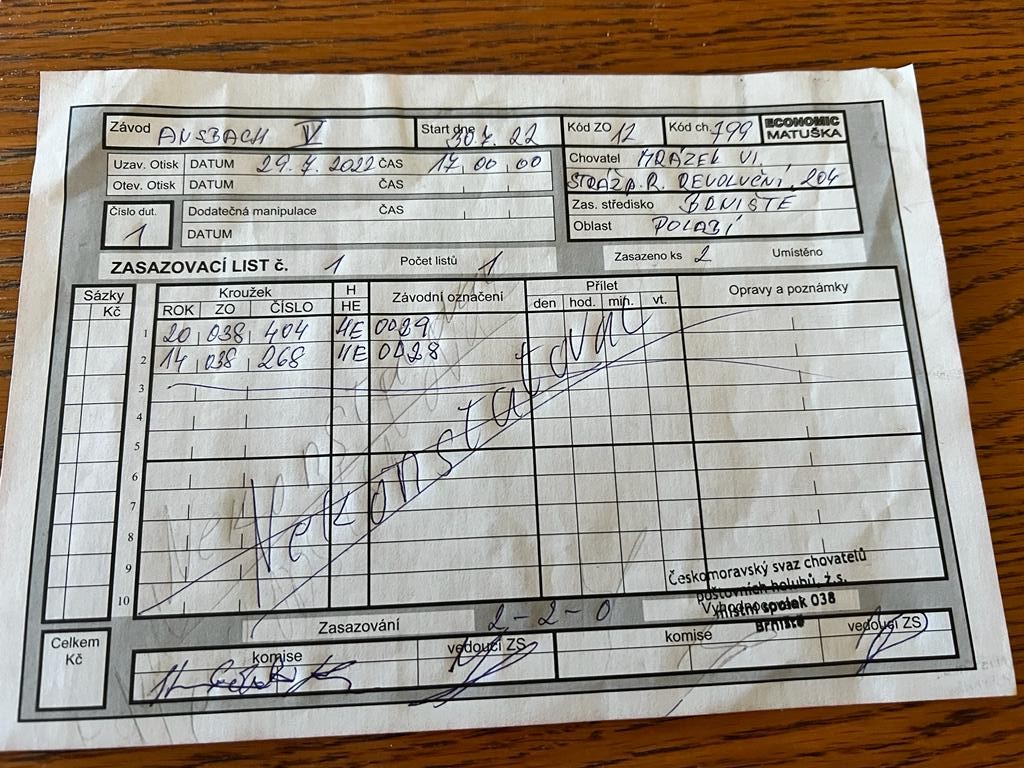 Závod ANSBACH V Start dne 30.7.22 Kód ZO 12 Kód ch. 799 ECONOMIC MATUŠKA
Uzav. Otisk DATUM 29.7.2022 ČAS 17 00 00
Otev. Otisk DATUM ČAS
Chovatel MRÁZEK Vl.
STRÁŽ P. R. REVOLUČNÍ, 204
Zas. středisko BRNIŠTE
Oblast POLABÍ
Číslo dut. 1
Dodatečná manipulace ČAS
DATUM
ZASAZOVACÍ LIST č. 1 Počet listů 1 Zasazeno ks 2 Umístěno
Sázky Kč
Kroužek H Závodní označení Přílet Opravy a poznámky
ROK ZO ČÍSLO HE den hod. min. vt.
1 20 038 404 HE 0029
2 14 038 268 HE 0028
3
4
5
6
7
8
9
10
Nekonstatoval
Českomoravský svaz chovatelů
poštovních holubů, z.s.
místní spolek 038
Brniště
Zasazování 2-2-0 Vyhodnocování
Celkem Kč
komise vedoucí ZS komise vedoucí ZS